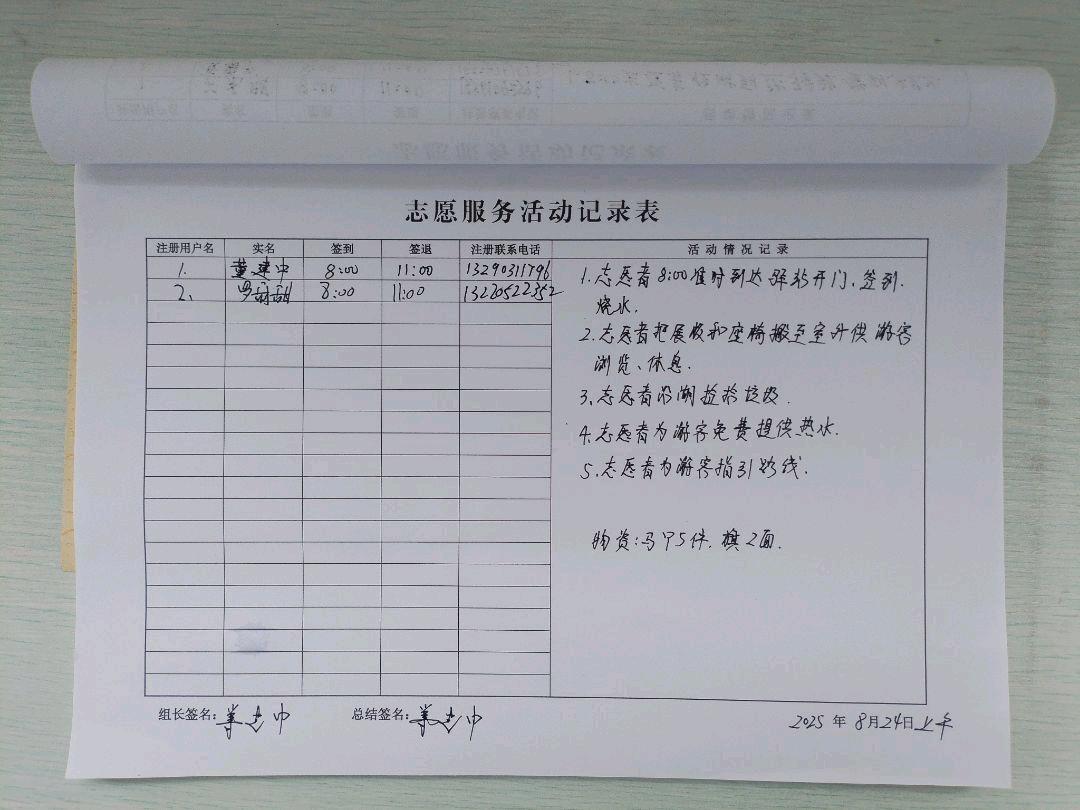 志愿服务活动记录表
注册用户名 实名 签到 签退 注册联系电话 活动情况记录
1. 董建中 8:00 11:00 13290311796
2、 罗甜甜 8:00 11:00 13220522352
1.志愿者8:00准时到达驿站开门、签到.
烧水.
2.志愿者把展板和座椅搬至室外供游客
浏览、休息.
3、志愿者沿湖捡拾垃圾.
4.志愿者为游客免费提供热水.
5.志愿者为游客指引路线.
物资:马甲5件.旗2面.
组长签名: 董建中 总结签名: 董建中 2025年8月24日上午